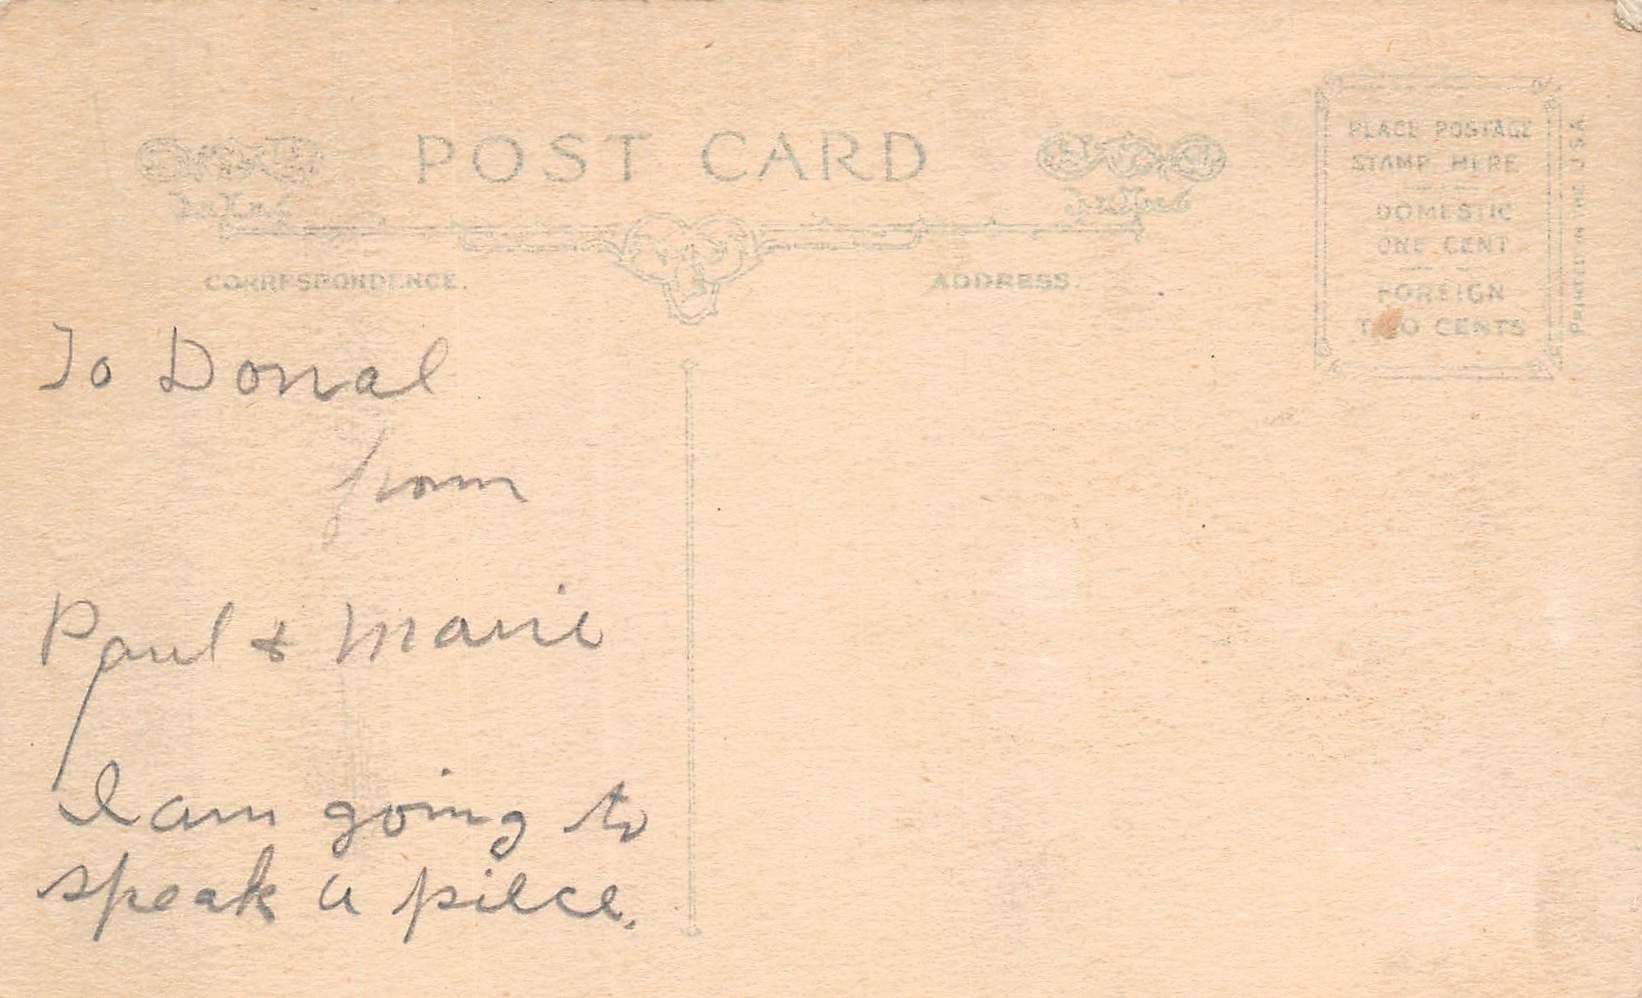 POST CARD
CORRESPONDENCE.
ADDRESS.
PLACE POSTAGE
STAMP HERE
DOMESTIC
ONE CENT
FOREIGN
TWO CENTS
PRINTED IN THE U.S.A.
To Donal
from
Paul & Marie
I am going to
speak a piece.